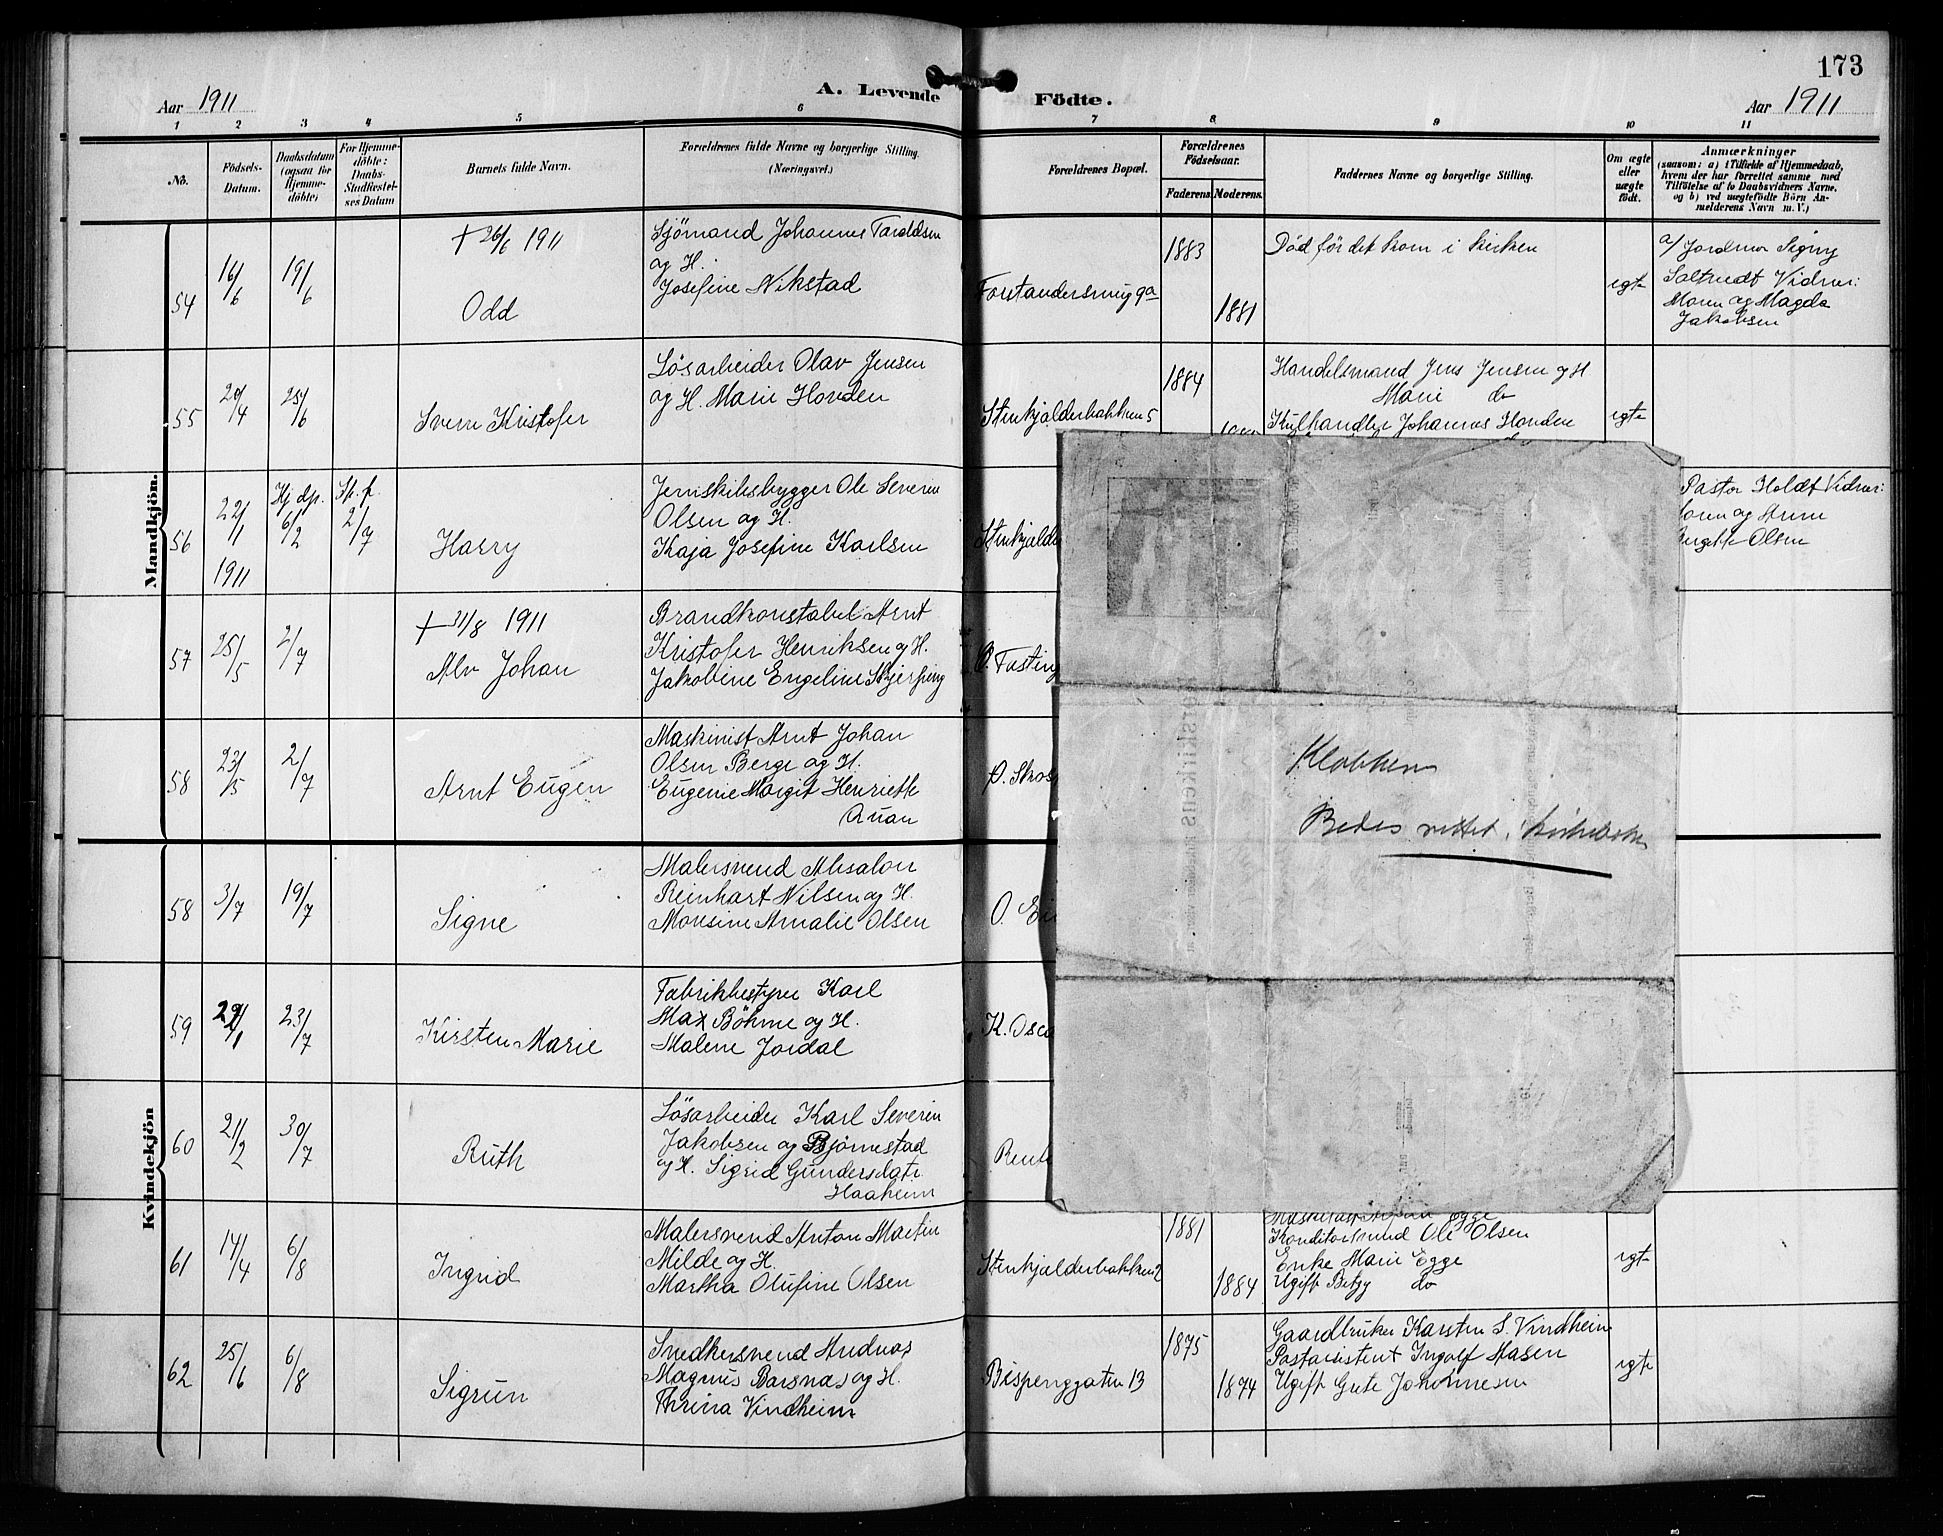 173
Aar 1911
A. Levende
Födte.
Aar 1911
1 2 3 4 5 6 7 8 9 10 11
No.
Födsels-
Datum.
Daabsdatum
(ogsaa for
Hjemme-
döbte)
For Hjemme-
döbte:
Daabs-
Stadfæstel-
ses Datum
Barnets fulde Navn.
Forældrenes fulde Navne og borgerlige Stilling.
(Næringsvei.)
Forældrenes Bopæl.
Forældrenes
Födselsaar.
Faderens. Moderens.
Faddernes Navne og borgerlige Stilling.
Om ægte
eller
uægte
födt.
Anmærkninger
(saasom: a) i Tilfælde af Hjemmedaab,
hvem der har forrettet samme med
Tilföielse af to Daabsvidners Navne.
og b) ved uægtefödte Börn An-
melderens Navn m. V.)
Mandkjön.
54
16/6
19/6
+ 26/6 1911
Odd
Sjømand Johannes Taraldsen
og H.
Josefine Nikstad
Forstandersmug 9a
1883
1881
Död för det kom i kirken
egte
a/ Jordmor Signy
Vidner:
Moren og Magda
Jakobsen
55
29/4
25/6
Sverre Kristofer
Løsarbeider Olav Jensen
og H. Marie Hovden
Stenkjælderbakken 5
1884
Handelsmand Jens Jensen og H
Marie do
Kulhandler Johannes Hovden
egte
56
22/1
1911
Hj dp.
6/2
St. f.
2/7
Harry
Jernskibsbygger Ole Severin
Olsen og H.
Kaja Josefine Karlsen
Stenkjælde
Pastor Holdt Vidner:
oren og Anne
Olsen
57
25/5
2/7
+ 31/8 1911
Alv Johan
Brandkonstabel Arnt
Kristofer Henriksen og H.
Jakobine Engeline Skjerping
Ø. Fasting
58
23/5
2/7
Arnt Eugen
Maskinist Arnt Johan
Olsen Berge og H.
Eugenie Margit Henriette
Auan
Ø. Skos
Klokken
Bedes rettet i kirkeboken
Kvindekjön
58
3/7
19/7
Signe
Malersvend Absalon
Reinhart Nilsen og H.
Monsine Amalie Olsen
59
29/1
23/7
Kirsten Marie
Fabrikbestyrer Karl
Max Böhme og H.
Malene Jordal
K. Osca
60
21/2
30/7
Ruth
Løsarbeider Karl Severin
Jakobsen og Bjørnestad
og H. Sigrid Gundersdatr
Haaheim
61
14/4
6/8
Ingrid
Malersvend Anton Martin
Milde og H.
Martha Olufine Olsen
Stenkjælderbakken 2
1881
1884
Egge
Konditorsvend Ole Olsen
Enke Marie Egge
Ugift Betzy do
egte
62
25/6
6/8
Sigrun
Snedkersvend Andreas
Magnus Barsnæs og H.
Thrina Vindheim
Bispenggaten 13
1875
1874
Gaardbruker Karsten S. Vindheim
Postassistent Ingolf Hasen
Ugift Gute Johannesen
egte